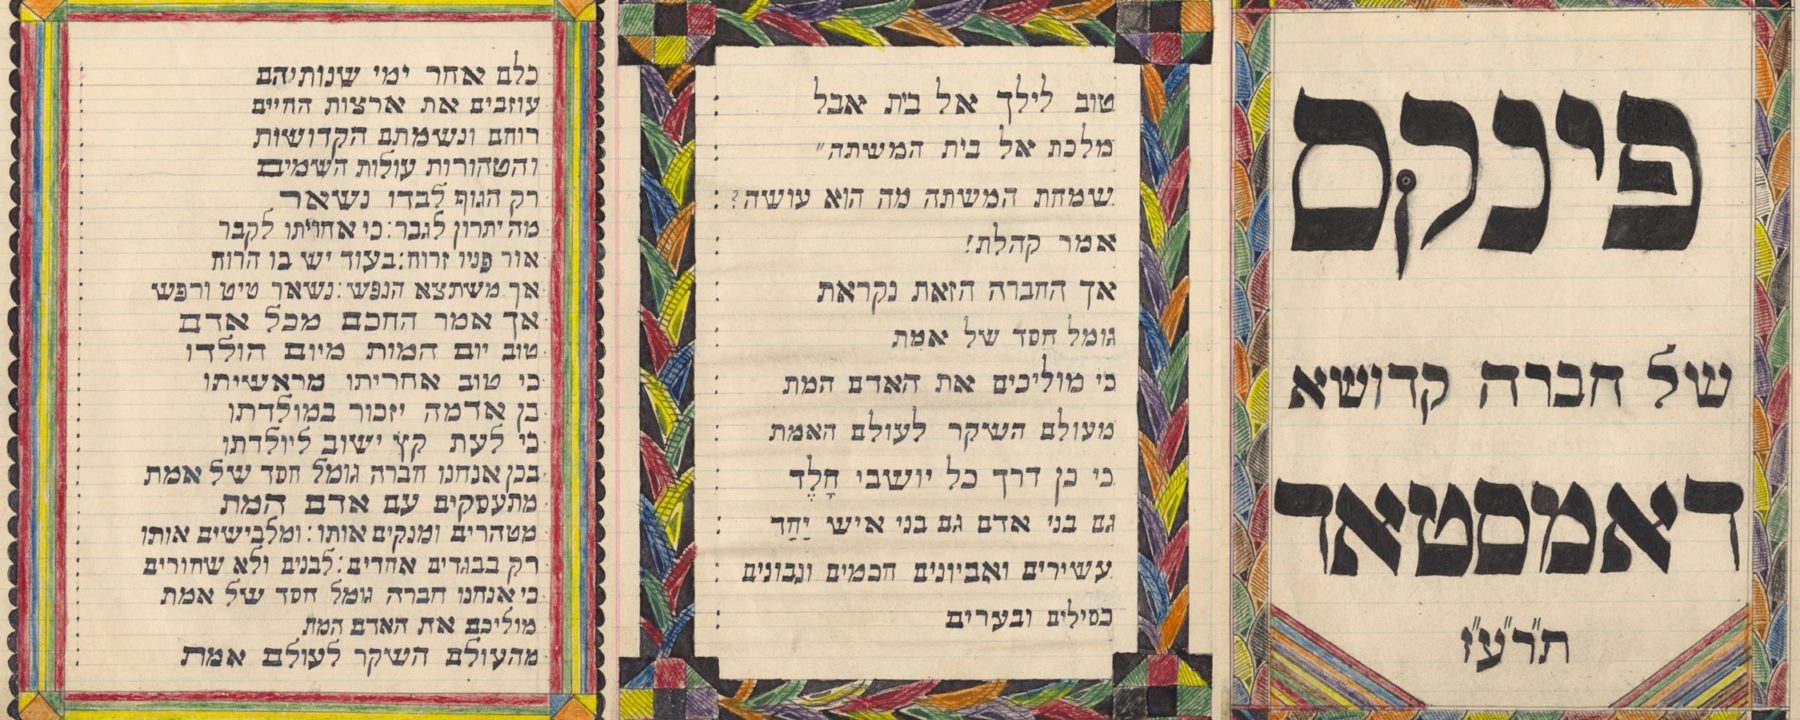 פינקס
של חברה קדושא
דאמסטאד
ת"ר"ע"ז
טוב לילך אל בית אבל
מלכת אל בית המשתה"
שמחת המשתה מה הוא עושה?
אמר קהלת!
אך החברה הזאת נקראת
גומל חסד של אמת
כי מוליכים את האדם המת
מעולם השקר לעולם האמת
כי כן דרך כל יושבי חָלֶד
גם בני אדם גם בני איש יַחַד
עשירים ואביונים חכמים ונבונים
כסילים ובערים
כלם אחר ימי שנותיהם
עוזבים את ארצות החיים
רוחם ונשמתם הקדושות
והטהורות עולות השמים
רק הגוף לבדו נשאר
מה יתרון לגבר: כי אחריתו לקבר
אור פניו זרוח: בעוד יש בו הרוח
אך משתצא הנפש: נשאר טיט ורפש
אך אמר החכם מכל אדם
טוב יום המות מיום הולדו
כי טוב אחריתו מראשיתו
בן אדמה יזכור במולדתו
כי לעת קץ ישוב ליולדתו
בכן אנחנו חברה גומל חסד של אמת
מתעסקים עם אדם המת
מטהרים ומנקים אותו: ומלבישים אותו
רק בבגדים אחדים: לבנים ולא שחורים
כי אנחנו חברה גומל חסד של אמת
מוליכם את האדם המת
מהעולם השקר לעולם אמת